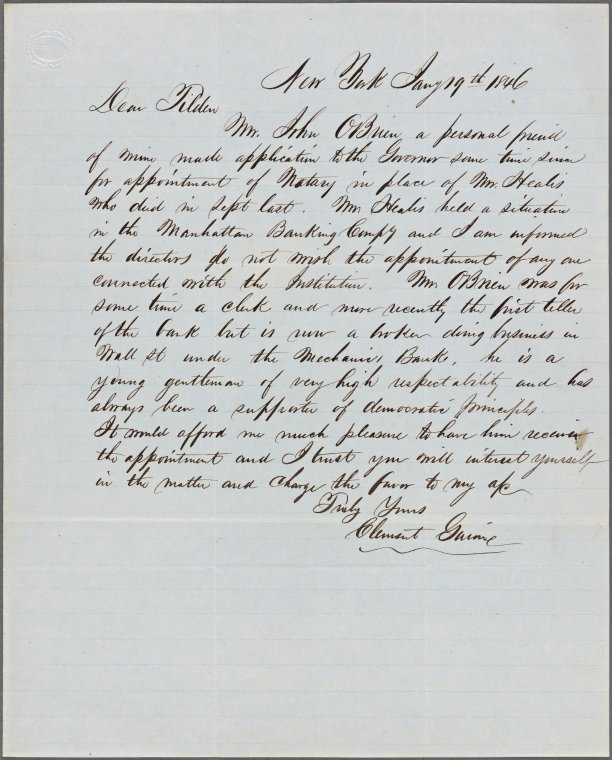 New York Jany 19th 1846
Dear Tilden
Mr. John OBrien, a personal friend
of mine made application to the Governor some time since
for appointment of Notary in place of Mr. Healis
who died in sept last. Mr. Healis held a situation
in the Manhattan Banking Compy and I am informed
the directors do not wish the appointment of any one
connected with the Institution. Mr OBrien was for
some time a clerk and more recently the first teller
of the bank but is now a broker doing business in
Wall St under the Mechanics Bank, he is a
young gentleman of very high respectability and has
always been a supporter of democratic principles.
It would afford me much pleasure to have him receive
the appointment and I trust you will interest yourself
in the matter and charge the favor to my a/c
Truly Yours
Clement